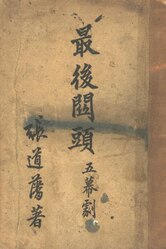 最後關頭
五幕劇
張道藩著